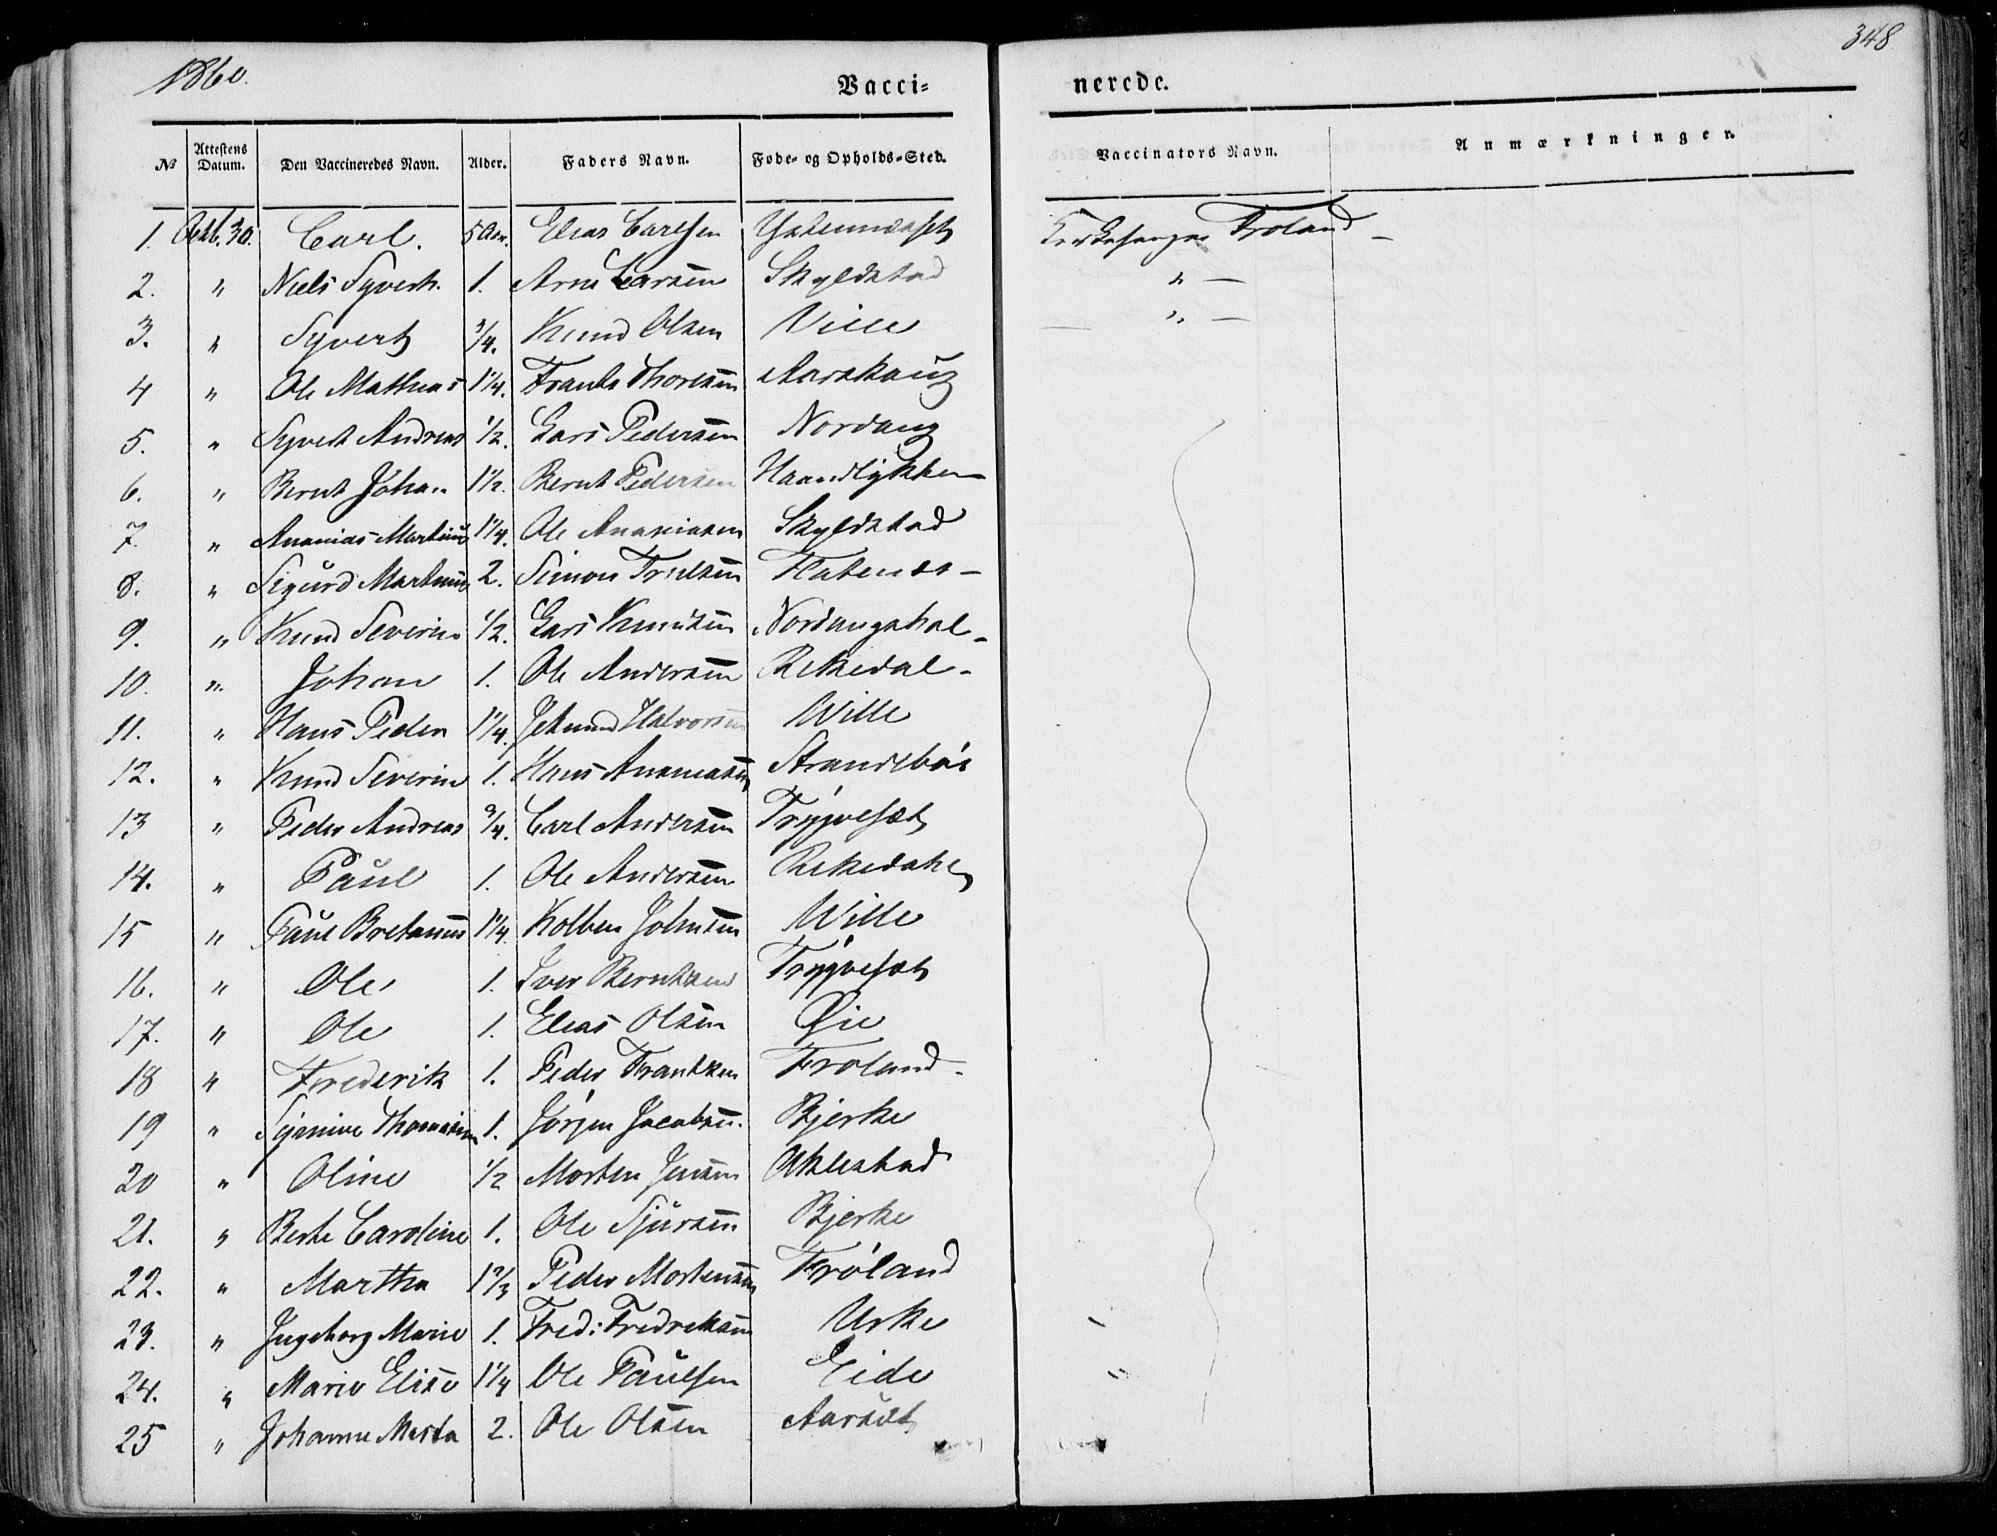 1860.
348
Vacci= nerede.
No Attestens Datum. Den Vaccineredes Navn. Alder. Faders Navn. Føde- og Opholds-Sted. Vaccinators Navn. Anmærkninger.
1. Octb. 30. Carl. 5 Aar. Elias Carlsen Kirkesanger Froland -
2. " Niels Syvert. 1. Arne Larsen Skyldstad " -
3. " Syvert 3/4. Knud Olsen Ville " -
4 " Ole Mathias 1 1/4. Frants Thoresen Aarskaug
5. " Syvert Andreas 1/2. Lars Pedersen Nordang
6. " Bernt Johan 1 1/2. Bernt Pedersen Haandlykken
7. " Ananias Martinus 1 1/4. Ole Ananiasen Skyldstad
8. " Sigurd Martinus 2. Simon Trulsen Flatenæs -
9. " Knud Severin 1/2. Lars Knudsen Nordangshal -
10. " Johan 1. Ole Andersen Rekedal -
11. " Hans Peder 1 1/4. Jetmund Halvorsen Wille
12. " Knud Severin 1. Hans Ananiasen Strandebøe
13 " Peder Andreas 3/4. Carl Andersen Tryggvesæt
14. " Paul 1. Ole Andersen Rekedahl
15 " Paul Bretanus 1 1/4. Kolben Johnsen Wille
16. " Ole 1. Iver Berntsen Tryggvesæt
17. " Ole 1. Elias Olsen Øie
18 " Frederik 1. Peder Frantzen Froland -
19 " Synnive Thomasine 1. Jørgen Jacobsen. Bjerke
20 " Oline 1/2 Morten Jensen Aklestad
21. " Berte Caroline 1. Ole Sjursen Bjerke
22. " Martha 1 2/3 Peder Mortensen Frøland
23. " Ingeborg Marie 1. Fred: Fredreksen Urke
24. " Marie Elise 1 1/4 Ole Paulsen Eide "
25 " Johanne Marta 2. Ole Olsen Aarsæt